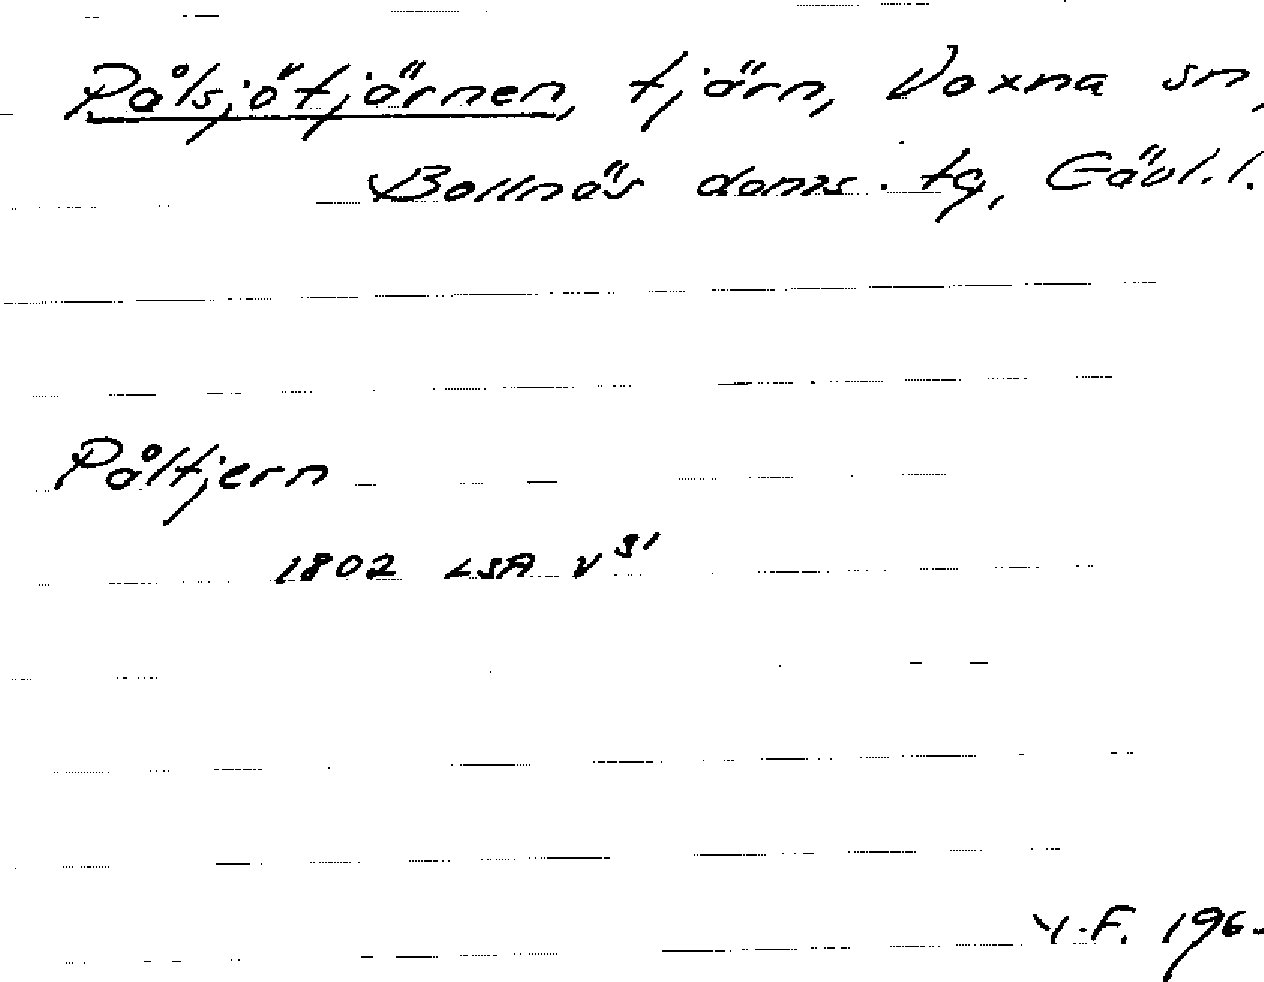 Pålsjötjärnen, tjärn, Voxna sn,
Bollnäs doms. tg, Gävl. l.
Påltjern
1802 LSA V 31
Y.F. 196